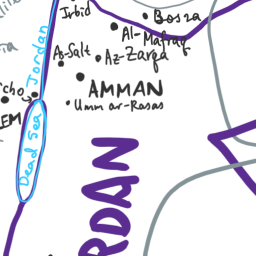 Irbid
Bosra
Al-Mafraq
As-Salt
Az-Zarqa
Jordan
AMMAN
Umm ar-Rasas
Dead Sea